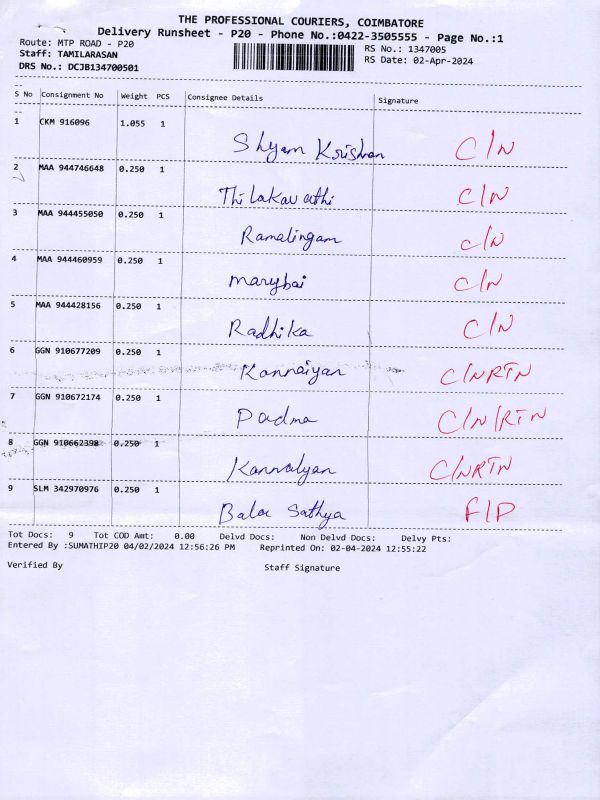 THE PROFESSIONAL COURIERS, COIMBATORE
Delivery Runsheet - P20 - Phone No.:0422-3505555 - Page No.:1
Route: MTP ROAD - P20 RS No.: 1347005
Staff: TAMILARASAN RS Date: 02-Apr-2024
DRS No.: DCJB134700501
S No Consignment No Weight PCS Consignee Details Signature
1 CKM 916096 1.055 1
Shyam Krishnan C/N
2 MAA 944746648 0.250 1
Thilakavathi C/N
3 MAA 944455050 0.250 1
Ramalingam C/N
4 MAA 944460959 0.250 1
Marybai C/N
5 MAA 944428156 0.250 1
Radhika C/N
6 GGN 910677209 0.250 1
Kannaiyan C/NRTN
7 GGN 910672174 0.250 1
Padma C/N/RTN
8 GGN 910662398 0.250 1
Kannaiyan C/NRTN
9 SLM 342970976 0.250 1
Bala Sathya F/P
Tot Docs: 9 Tot COD Amt: 0.00 Delvd Docs: Non Delvd Docs: Delvy Pts:
Entered By :SUMATHIP20 04/02/2024 12:56:26 PM Reprinted On: 02-04-2024 12:55:22
Verified By Staff Signature